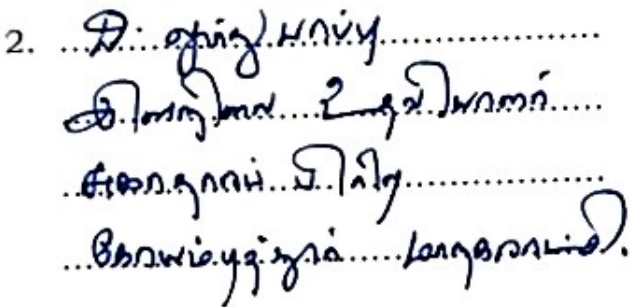 2. பி. முத்து பாப்பு
இளநிலை உதவியாளர்
சுகாதாரப் பிரிவு
கோயம்புத்தூர் மாநகராட்சி.